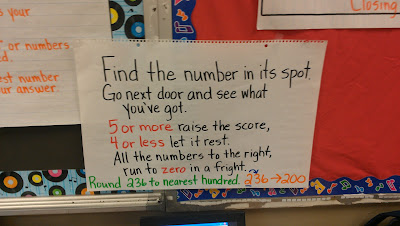 Closing
s your
" or numbers
d.
est number
ur answer.
Find the number in its spot.
Go next door and see what
you've got.
5 or more raise the score,
4 or less let it rest.
All the numbers to the right,
run to zero in a fright.
Round 236 to nearest hundred. 236→200